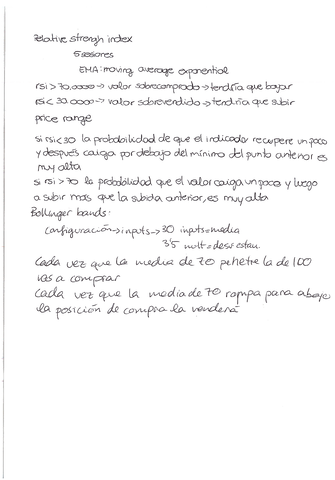 Relative strengh index
5 sesiones
EMA: moving average exponential
rsi > 70.0000 → valor sobrecomprado → tendría que bajar
rsi < 30.0000 → valor sobrevendido → tendría que subir
price range
si rsi < 30 la probabilidad de que el indicador recupere un poco
y después caiga por debajo del mínimo del punto anterior es
muy alta
si rsi > 70 la probabilidad que el valor caiga un poco y luego
a subir mas que la subida anterior, es muy alta
Bollinger bands:
configuración → inputs → 30 inputs = media
3'5 mult = desv estan.
Cada vez que la media de 70 penetre la de 100
vas a comprar
Cada vez que la media de 70 rompa para abajo
la posición de compra la venderá